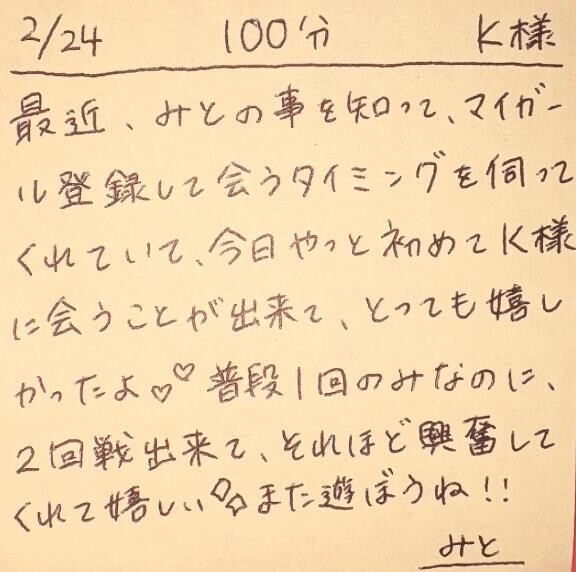 2/24 100分 K様
最近、みとの事を知って、マイガー
ル登録して会うタイミングを伺って
くれていて、今日やっと初めてK様
に会うことが出来て、とっても嬉し
かったよ♡♡ 普段1回のみなのに、
2回戦出来て、それほど興奮して
くれて嬉しい✧✧また遊ぼうね!!
みと